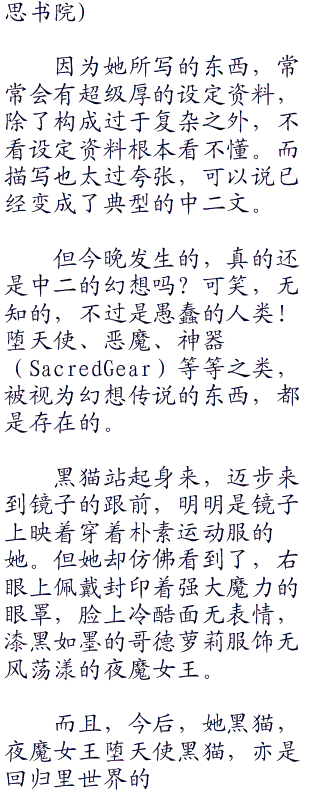 思书院）
因为她所写的东西，常
常会有超级厚的设定资料，
除了构成过于复杂之外，不
看设定资料根本看不懂。而
描写也太过夸张，可以说已
经变成了典型的中二文。
但今晚发生的，真的还
是中二的幻想吗？可笑，无
知的，不过是愚蠢的人类！
堕天使、恶魔、神器
（SacredGear）等等之类，
被视为幻想传说的东西，都
是存在的。
黑猫站起身来，迈步来
到镜子的跟前，明明是镜子
上映着穿着朴素运动服的
她。但她却仿佛看到了，右
眼上佩戴封印着强大魔力的
眼罩，脸上冷酷面无表情，
漆黑如墨的哥德萝莉服饰无
风荡漾的夜魔女王。
而且，今后，她黑猫，
夜魔女王堕天使黑猫，亦是
回归里世界的